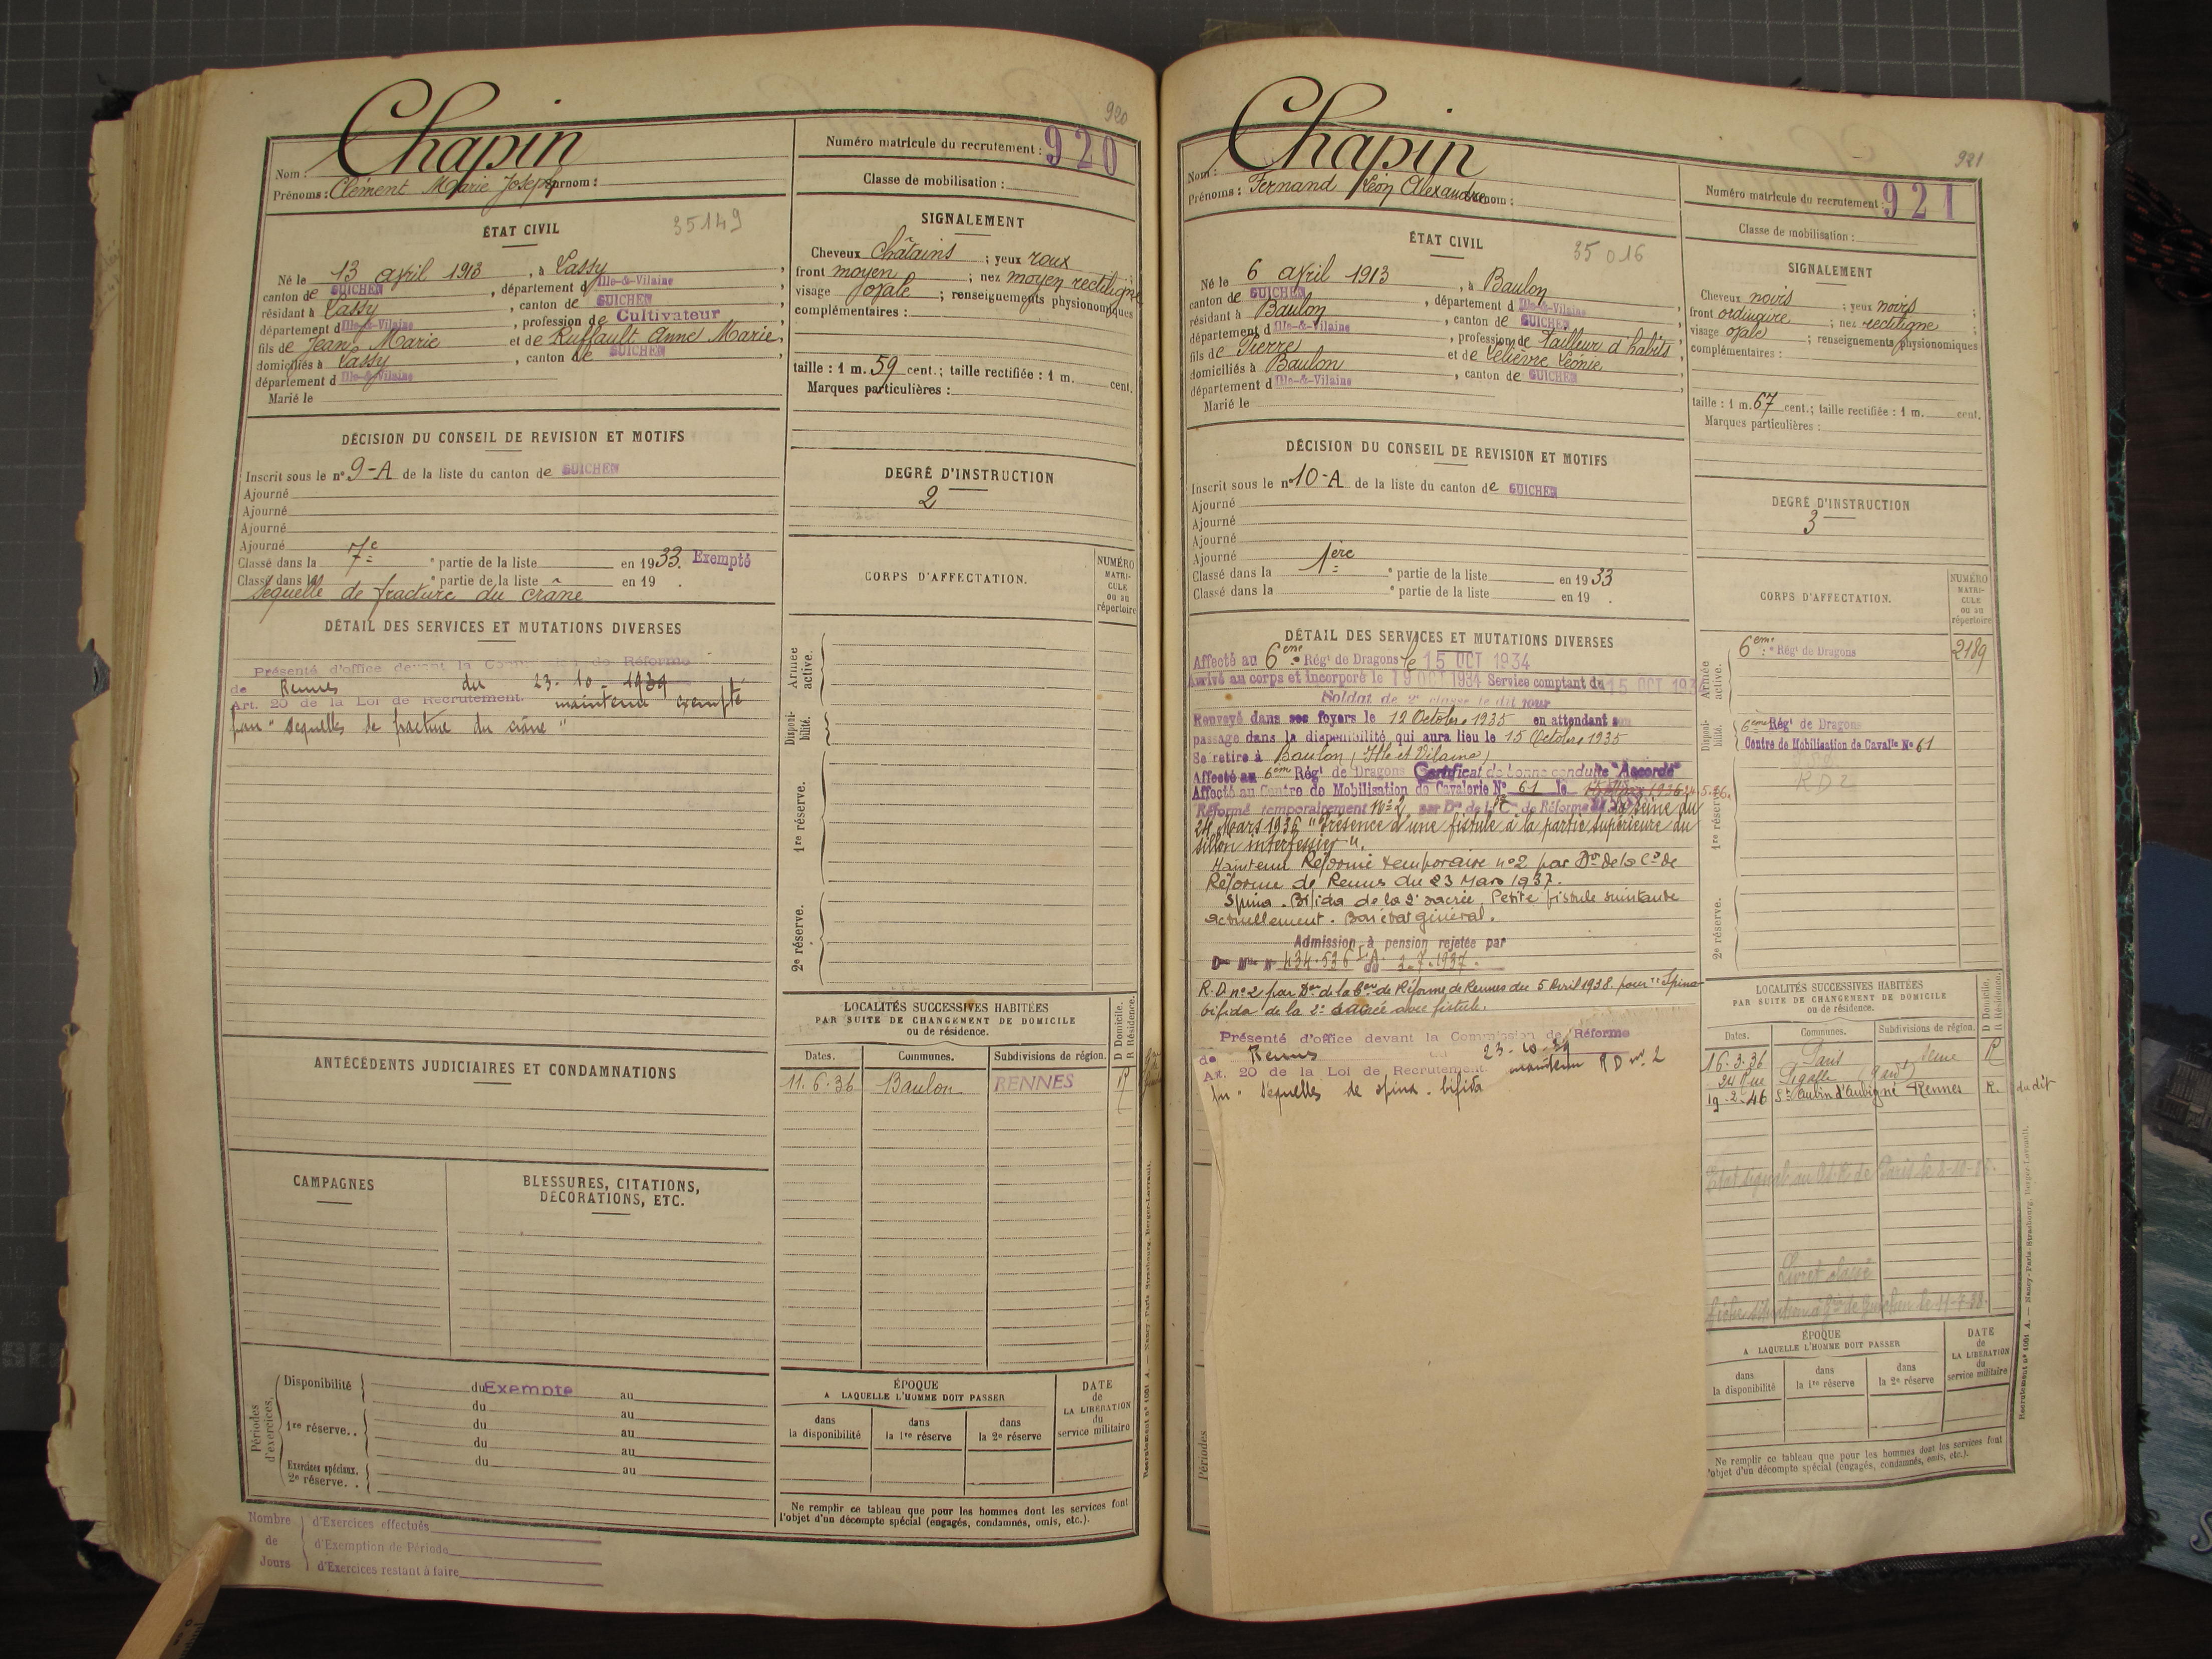 920
Chapin
Nom :
Prénoms : Clément Marie Joseph Surnom :
Numéro matricule du recrutement : 920
Classe de mobilisation :
ÉTAT CIVIL
35149
Né le 13 avril 1913, à Lassy,
canton de GUICHEN, département d Ille-&-Vilaine,
résidant à Lassy, canton de GUICHEN,
département d Ille-&-Vilaine, profession de Cultivateur
fils de Jean Marie et de Ruffault Anne Marie,
domiciliés à Lassy, canton de GUICHEN,
département d Ille-&-Vilaine
Marié le
SIGNALEMENT
Cheveux châtains ; yeux roux ;
front moyen ; nez moyen rectiligne
visage ovale ; renseignements physionomiques
complémentaires :
taille : 1 m. 59 cent.; taille rectifiée : 1 m. cent.
Marques particulières :
DÉCISION DU CONSEIL DE REVISION ET MOTIFS
Inscrit sous le n° 9-A de la liste du canton de GUICHEN
Ajourné
Ajourné
Ajourné
Ajourné
Classé dans la 7e partie de la liste en 1933. Exempté
Classé dans la partie de la liste en 19 .
Séquelle de fracture du crâne
DEGRÉ D'INSTRUCTION
2
DÉTAIL DES SERVICES ET MUTATIONS DIVERSES
Présenté d'office devant la Commission de Réforme
de Rennes du 23-10-1939
Art. 20 de la Loi de Recrutement. maintenu exempté
pour "séquelles de fracture du crâne"
CORPS D'AFFECTATION.
NUMÉRO MATRICULE ou au répertoire
Armée active.
Disponibilité.
1re réserve.
2e réserve.
LOCALITÉS SUCCESSIVES HABITÉES
PAR SUITE DE CHANGEMENT DE DOMICILE
ou de résidence.
D Domicile. R Résidence.
Dates. Communes. Subdivisions de région.
11.6.36 Baulon RENNES R
ANTÉCÉDENTS JUDICIAIRES ET CONDAMNATIONS
CAMPAGNES
BLESSURES, CITATIONS, DÉCORATIONS, ETC.
Périodes d'exercices.
Disponibilité du Exempté au
du au
1re réserve.. du au
du au
Exercices spéciaux. 2e réserve. . du au
ÉPOQUE
A LAQUELLE L'HOMME DOIT PASSER
dans la disponibilité
dans la 1re réserve
dans la 2e réserve
DATE de LA LIBÉRATION du service militaire
Ne remplir ce tableau que pour les hommes dont les services font
l'objet d'un décompte spécial (engagés, condamnés, omis, etc.).
Nombre de Jours
d'Exercices effectués
d'Exemption de Période
d'Exercices restant à faire
Recrutement n° 1091 A. — Nancy-Paris-Strasbourg, Berger-Levrault.
921
Chapin
Nom :
Prénoms : Fernand Léon Alexandre Surnom :
Numéro matricule du recrutement : 921
Classe de mobilisation :
ÉTAT CIVIL
35016
Né le 6 avril 1913, à Baulon,
canton de GUICHEN, département d Ille-&-Vilaine,
résidant à Baulon, canton de GUICHEN,
département d Ille-&-Vilaine, profession de tailleur d'habits,
fils de Pierre et de Lelièvre Léonie,
domiciliés à Baulon, canton de GUICHEN,
département d Ille-&-Vilaine
Marié le
SIGNALEMENT
Cheveux noirs ; yeux noirs ;
front ordinaire ; nez rectiligne ;
visage ovale ; renseignements physionomiques
complémentaires :
taille : 1 m. 67 cent.; taille rectifiée : 1 m. cent.
Marques particulières :
DÉCISION DU CONSEIL DE REVISION ET MOTIFS
Inscrit sous le n° 10-A de la liste du canton de GUICHEN
Ajourné
Ajourné
Ajourné
Ajourné
Classé dans la 1ère partie de la liste en 1933
Classé dans la partie de la liste en 19 .
DEGRÉ D'INSTRUCTION
3
DÉTAIL DES SERVICES ET MUTATIONS DIVERSES
Affecté au 6eme Régt de Dragons le 15 OCT 1934
Arrivé au corps et incorporé le 19 OCT 1934 Service comptant du 15 OCT 1934
Soldat de 2e classe le dit jour
Renvoyé dans ses foyers le 12 Octobre 1935 en attendant son
passage dans la disponibilité qui aura lieu le 15 Octobre 1935
Se retire à Baulon (Ille et Vilaine)
Affecté au 6em Régt de Dragons Certificat de bonne conduite "Accordé"
Affecté au Centre de Mobilisation de Cavalerie N° 61 le
Réformé temporairement N° 2 par Don de la Con de Réforme de la Seine du
24 Mars 1936 "Présence d'une fistule à la partie supérieure du
sillon interfessier".
Maintenu Réformé temporaire n°2 par Don de la Con de
Réforme de Rennes du 23 Mars 1937.
Spina-Bifida de la 2e sacrée. Petite fistule suintante
actuellement. Bon état général.
Admission à pension rejetée par
Don Mlle N° 434.536 du 3.7.1937.
R.D. n°2 par Don de la Con de Réforme de Rennes du 5 Avril 1938 pour "Spina-
bifida de la 2e sacrée avec fistule.
Présenté d'office devant la Commission de Réforme
de Rennes du 23-10-39
Art. 20 de la Loi de Recrutement. maintenu RD n° 2
pr "séquelles de spina-bifida
CORPS D'AFFECTATION.
NUMÉRO MATRICULE ou au répertoire
Armée active.
6eme Régt de Dragons 2189
Disponibilité.
6eme Régt de Dragons
Centre de Mobilisation de Cavalie N° 61
1re réserve.
RD2
2e réserve.
LOCALITÉS SUCCESSIVES HABITÉES
PAR SUITE DE CHANGEMENT DE DOMICILE
ou de résidence.
D Domicile. R Résidence.
Dates. Communes. Subdivisions de région.
16.3.36 Paris Seine R
24 Rue Pigalle
19-2-46 St Aubin d'Aubigné Rennes R. du dit
Livret classé
Périodes
ÉPOQUE
A LAQUELLE L'HOMME DOIT PASSER
dans la disponibilité
dans la 1re réserve
dans la 2e réserve
DATE de LA LIBÉRATION du service militaire
Ne remplir ce tableau que pour les hommes dont les services font
l'objet d'un décompte spécial (engagés, condamnés, omis, etc.).
Recrutement n° 1091 A. — Nancy-Paris-Strasbourg, Berger-Levrault.